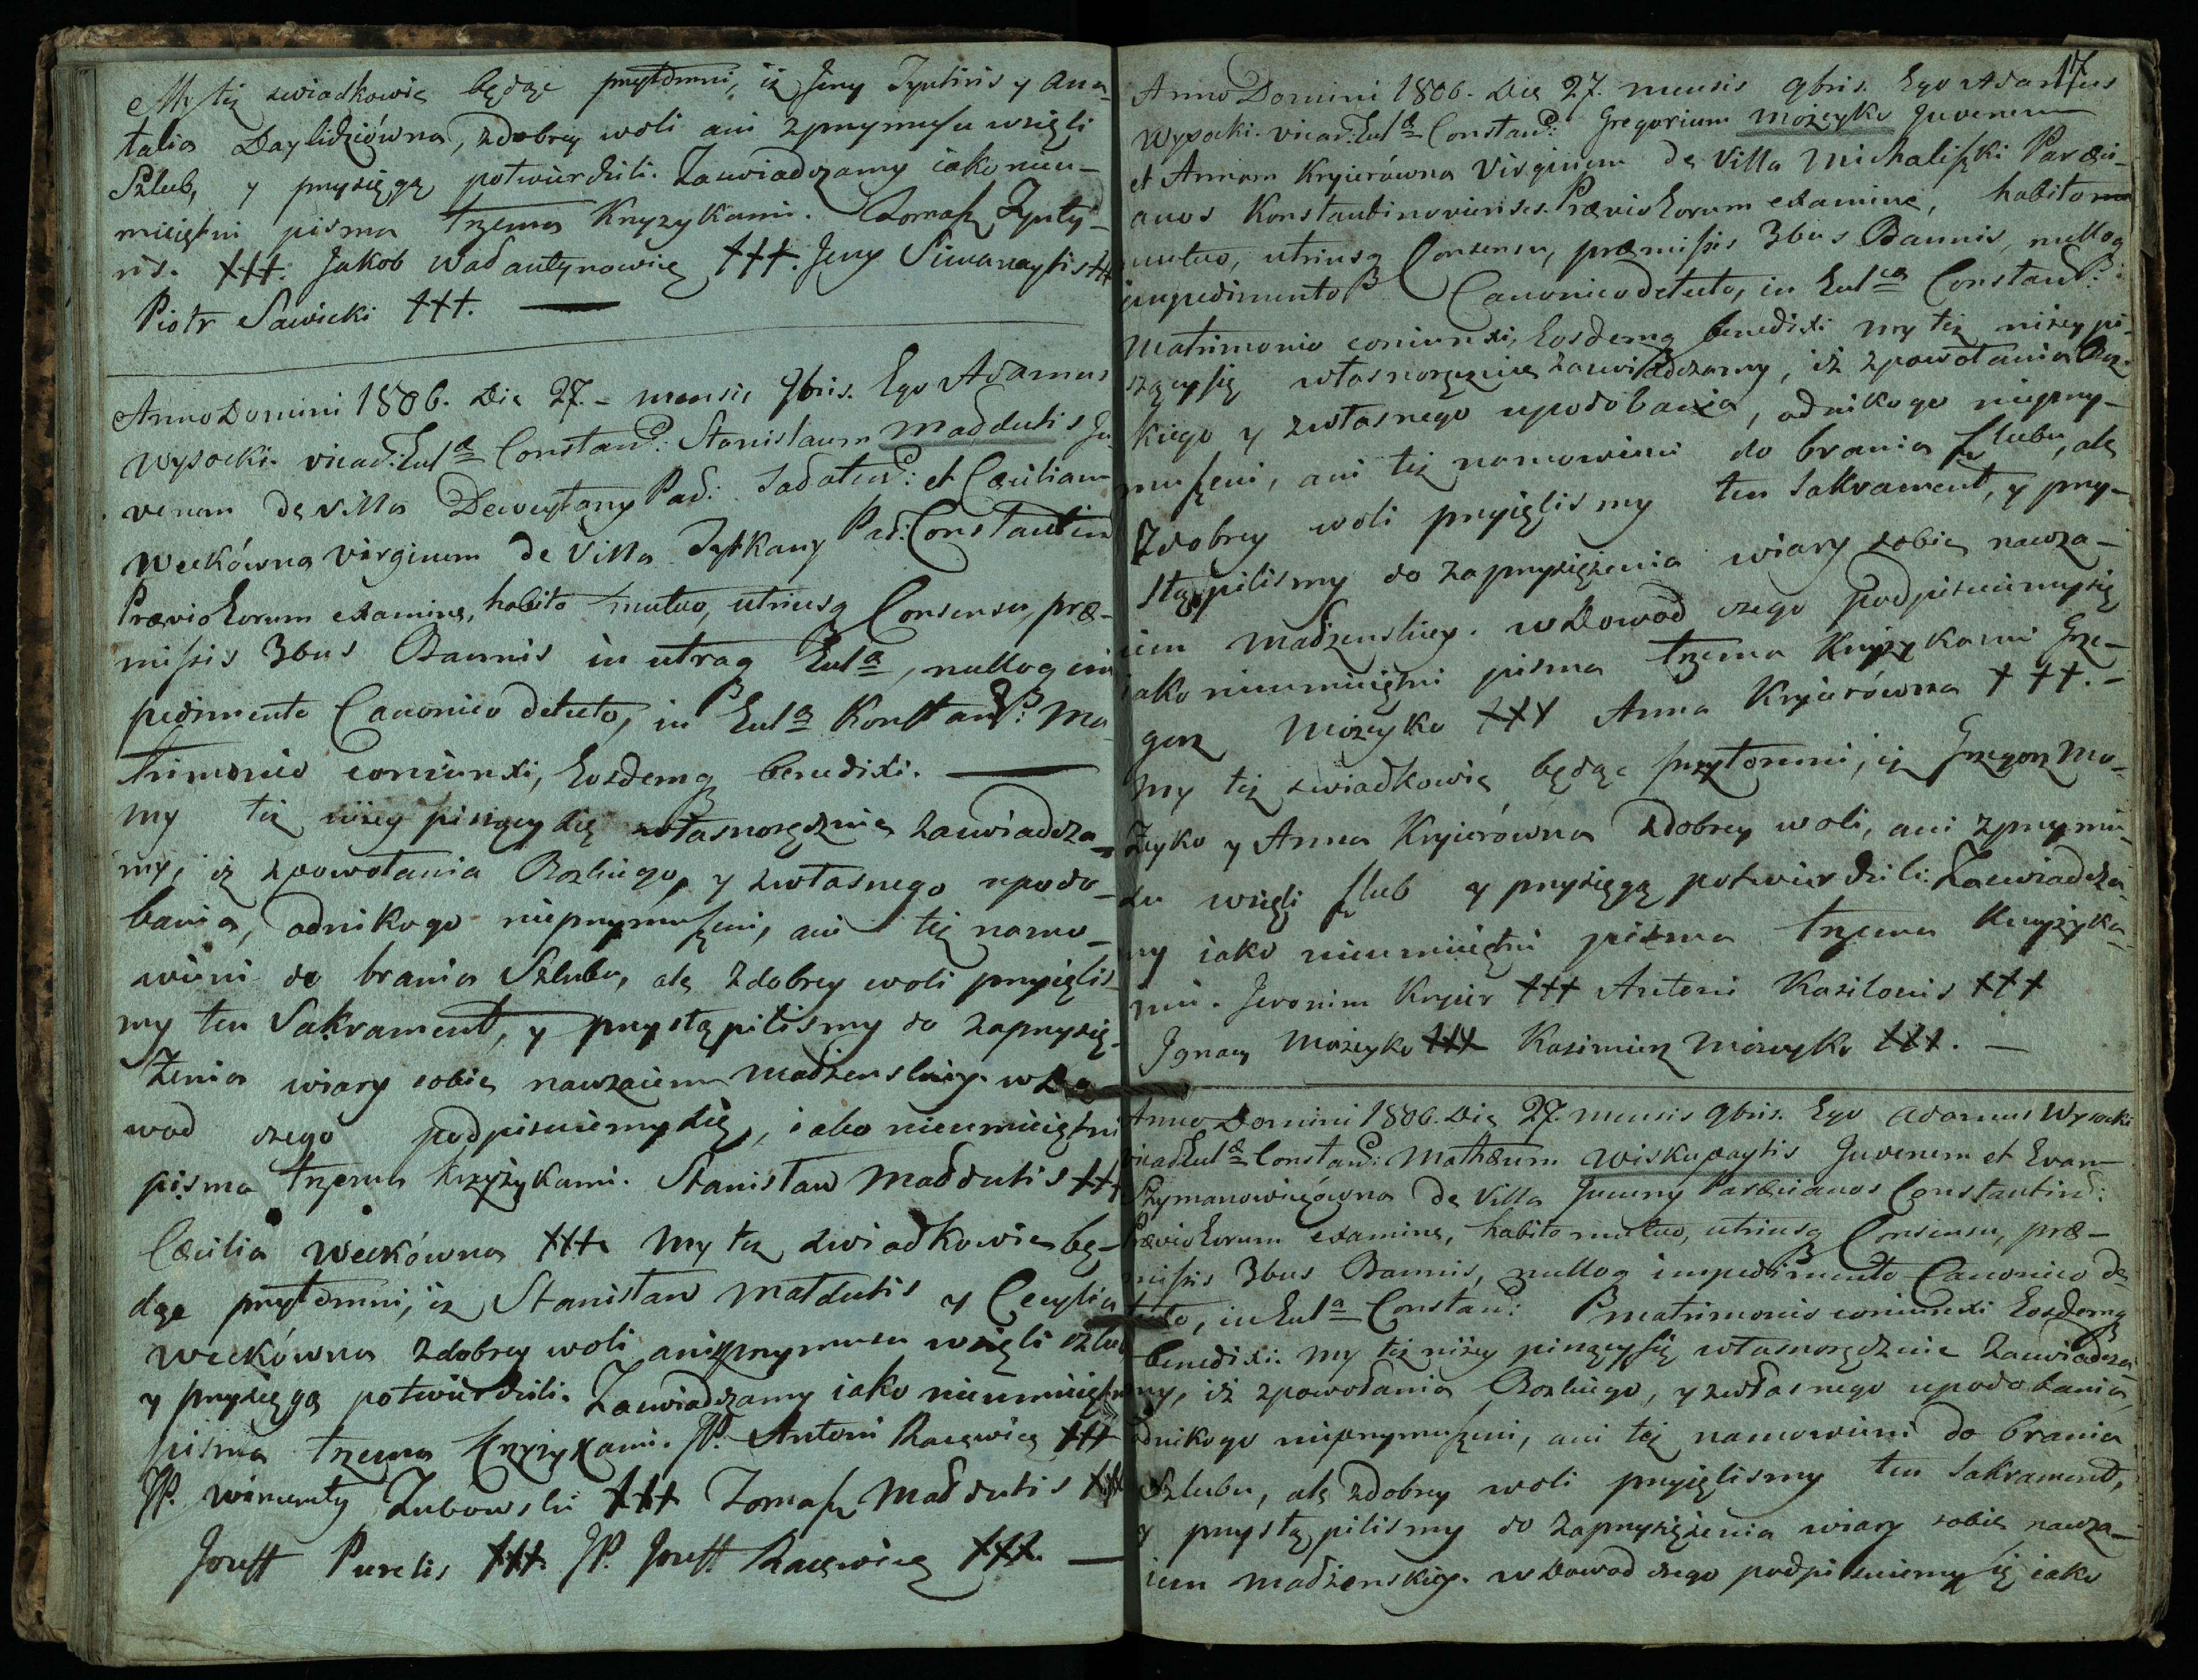 My też swiadkowie będąc przytomni, iż Jerzy Zyntiris y Ana-
talia Daylidziówna, zdobrey woli ani zprzymusu wzięli
Szlub, y przysięgą potwierdzili. Zaswiadczamy iako nieu-
mieiętni pisma trzema Krzyzykami. Tomasz Zynty-
ris. +++. Jakob Wadantynowicz +++. Jerzy Siwanaytis ++
Piotr Sawicki +++.
Anno Domini 1806. Die 27.- mensis 9bris. Ego Adamus
Wysocki vicar: Eccl~a Constanp: Stanislaum Maddutis Ju-
venem de villa Deweytany Par: Sadoten: et Cæciliam
Weckówna virginem de Villa Tytkany Par: Constantin
Prævio Eorum examine, habito mutuo, utriusq Consensu, præ-
missis 3bus Bannis in utraq Eccl~a, nulloq im
pedimento Canonico detecto, in Eccl~a Konstanp: Ma-
trimonio coniunxi, Eosdemq benedixi.
my też niżey piszący się własnoręcznie zaswiadcza-
my, iż z powołania Bozkiego, y zwłasnego upodo-
bania, odnikogo nieprzymuszeni, ani też namo-
wieni do brania Szlubu, ale zdobrey woli przyięlis-
my ten Sakrament, y przystąpilismy do zaprzysię-
żenia wiary sobie nawzaiem madżenskiey. w Do-
wod czego podpisuiemy się, iako nieumieiętni
pisma trzema krzyżykami. Stanisław Maddutis +++
Cæcilia Weckówna +++. My też swiadkowie bę-
dąc przytomni, iż Stanisław Matdutis y Cecylia
Weckówna zdobrey woli ani zprzymusu wzięli szlub
y przysięgą potwierdzili. Zaswiadczamy iako nieumieiętni
pisma trzema krzyżykami. JP. Antoni Racewicz +++
JP. Wincenty Zubowski +++ Tomasz Maddutis +++
Jozeff Purelis +++. JP. Jozeff Racewicz +++.
17
Anno Domini 1806. Die 27. mensis 9bris. Ego Adamus
Wysocki vicar: Eccl~a Constanp: Gregorium Możeyko Juvenem
et Annam Kryierówna Virginem de Villa Michaliszki Paræci-
anos Konstantinovienses. Prævio Eorum examine, habito
mutuo, utriusq Consensu, præmissis 3bus Bannis, nulloq
impedimento Canonico detecto, in Eccl~a Constanp:
Matrimonio coniunxi, Eosdemq benedixi my też niżey pi-
szący się własnoręcznie zaswiadczamy, iż zpowołania Boz-
kiego y zwłasnego upodobania, odnikogo nieprzy-
muszeni, ani też namowieni do brania szlubu, ale
Zdobrey woli przyięlismy ten Sakrament, y przy-
stąpilismy do zaprzysiężenia wiary sobie nawza-
iem madżenskiey. w Dowod czego podpisuiemy się
iako nieumieiętni pisma trzema Krzyżykami Grze-
gorz Możeyko +++ Anna Kryierówna +++.-
My też swiadkowie będąc przytomni, iż Grzegorz Mo-
żeyko y Anna Kryierówna zdobrey woli, ani zprzymu-
su wzięli szlub y przysięgą potwierdzili: Zaswiadcza-
my iako nieumieiętni pisma trzema Krzyżyka-
mi. Jeronim Kryier +++ Antoni Kazilonis +++
Jgnacy Możeyko +++ Kazimierz Możeyko +++.
Anno Domini 1806. Die 27. mensis 9bris. Ego Adamus Wysocki
vicar Eccl~a Constanp: Mathæum Wiskupaytis Juvenem et Evam
Szymanowiczówna De Villa Jucuny Paræcianos Constantin:
Prævio Eorum examine, habito mutuo, utriusq Consensu, præ-
missis 3bus Bannis, nulloq impedimento Canonico de-
tecto, in Eccl~a Constanp: matrimonio coniunxi Eosdemq
benedixi. My też niżey piszący się własnoręcznie zaswiadcza-
my, iż zpowołania Bozkiego, y zwłasnego upodobania,
odnikogo nieprzymuszeni, ani też namowieni do brania
Szlubu, ale zdobrey woli przyięlismy ten Sakrament,
y przystąpilismy do zaprzysiężenia wiary sobie nawza-
iem madżenskiey. w Dowod czego podpisuiemy się iako